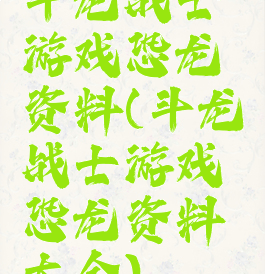 斗龙战士
游戏恐龙
资料(斗龙
战士游戏
恐龙资料
大全)